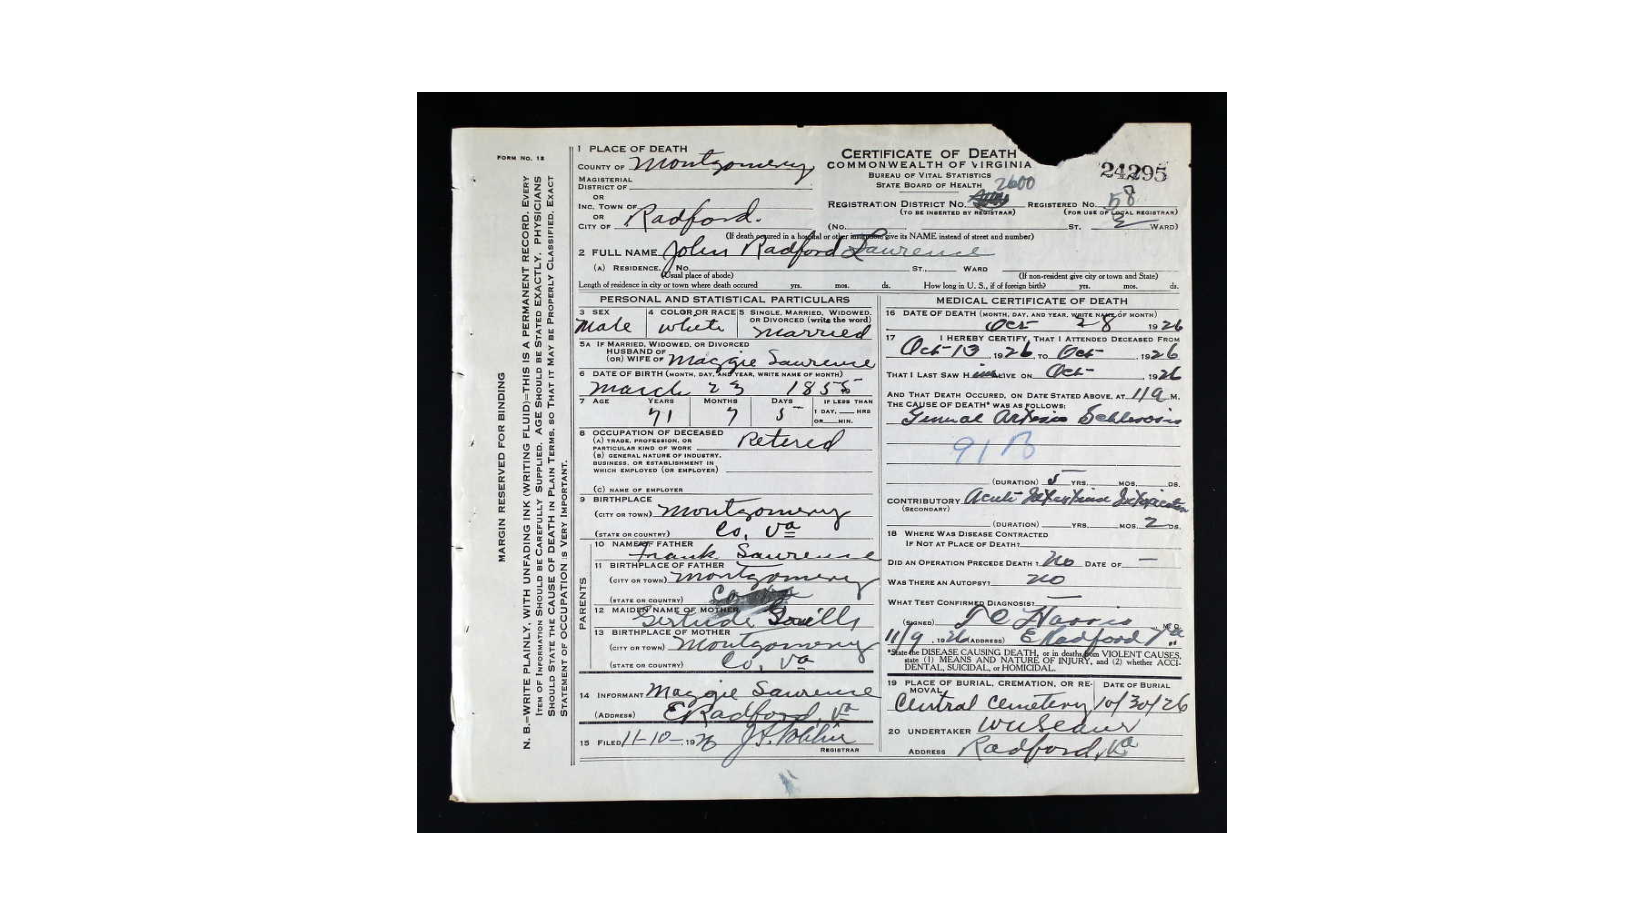 FORM NO. 18
MARGIN RESERVED FOR BINDING
N. B.—WRITE PLAINLY, WITH UNFADING INK (WRITING FLUID)—THIS IS A PERMANENT RECORD. EVERY
ITEM OF INFORMATION SHOULD BE CAREFULLY SUPPLIED. AGE SHOULD BE STATED EXACTLY. PHYSICIANS
SHOULD STATE THE CAUSE OF DEATH IN PLAIN TERMS, SO THAT IT MAY BE PROPERLY CLASSIFIED. EXACT
STATEMENT OF OCCUPATION IS VERY IMPORTANT.
1 PLACE OF DEATH
COUNTY OF Montgomery
MAGISTERIAL
DISTRICT OF
OR
INC. TOWN OF
OR
CITY OF Radford.
CERTIFICATE OF DEATH
COMMONWEALTH OF VIRGINIA
BUREAU OF VITAL STATISTICS
STATE BOARD OF HEALTH
24295
2600
REGISTRATION DISTRICT NO. REGISTERED NO. 58
(TO BE INSERTED BY REGISTRAR) (FOR USE OF LOCAL REGISTRAR)
(No. ST. 2 WARD)
(If death occured in a hospital or other institution, give its NAME instead of street and number)
2 FULL NAME John Radford Lawrence
(A) RESIDENCE. No. ST., WARD
(Usual place of abode) (If non-resident give city or town and State)
Length of residence in city or town where death occured yrs. mos. ds. How long in U. S., if of foreign birth? yrs. mos. ds.
PERSONAL AND STATISTICAL PARTICULARS
3 SEX Male
4 COLOR OR RACE white
5 SINGLE, MARRIED, WIDOWED, OR DIVORCED (write the word) Married
5A IF MARRIED, WIDOWED, OR DIVORCED
HUSBAND OF
(OR) WIFE OF Maggie Lawrence
6 DATE OF BIRTH (MONTH, DAY, AND YEAR, WRITE NAME OF MONTH)
March 23 1855
7 AGE YEARS MONTHS DAYS IF LESS THAN
71 7 5 1 DAY, HRS
OR MIN.
8 OCCUPATION OF DECEASED
(A) TRADE, PROFESSION, OR
PARTICULAR KIND OF WORK Retered
(B) GENERAL NATURE OF INDUSTRY,
BUSINESS, OR ESTABLISHMENT IN
WHICH EMPLOYED (OR EMPLOYER)
(C) NAME OF EMPLOYER
9 BIRTHPLACE
(CITY OR TOWN) Montgomery
(STATE OR COUNTRY) Co, Va
PARENTS
10 NAME OF FATHER
Frank Lawrence
11 BIRTHPLACE OF FATHER
(CITY OR TOWN) Montgomery
(STATE OR COUNTRY) Co
12 MAIDEN NAME OF MOTHER
Gertrude
13 BIRTHPLACE OF MOTHER
(CITY OR TOWN) Montgomery
(STATE OR COUNTRY) Co, Va
14 INFORMANT Maggie Lawrence
(ADDRESS) E Radford, Va
15 FILED 11-10-1926
REGISTRAR
MEDICAL CERTIFICATE OF DEATH
16 DATE OF DEATH (MONTH, DAY, AND YEAR, WRITE NAME OF MONTH)
Oct 28 1926
17 I HEREBY CERTIFY, THAT I ATTENDED DECEASED FROM
Oct 13, 1926, TO Oct , 1926
THAT I LAST SAW H im ALIVE ON Oct , 1926
AND THAT DEATH OCCURED, ON DATE STATED ABOVE, AT M.
THE CAUSE OF DEATH* WAS AS FOLLOWS:
General
91 B
(DURATION) 5 YRS. MOS. DS.
CONTRIBUTORY Acute
(SECONDARY)
(DURATION) YRS. MOS. 2 DS.
18 WHERE WAS DISEASE CONTRACTED
IF NOT AT PLACE OF DEATH?
DID AN OPERATION PRECEDE DEATH? No DATE OF —
WAS THERE AN AUTOPSY? no
WHAT TEST CONFIRMED DIAGNOSIS? —
(SIGNED) Harris M.D.
11/9, 1926 (ADDRESS) E Radford Va
*State the DISEASE CAUSING DEATH, or in deaths from VIOLENT CAUSES,
state (1) MEANS AND NATURE OF INJURY, and (2) whether ACCI-
DENTAL, SUICIDAL, or HOMICIDAL.
19 PLACE OF BURIAL, CREMATION, OR RE-
MOVAL
DATE OF BURIAL
Central Cemetery 10/30/26
20 UNDERTAKER
ADDRESS Radford, Va